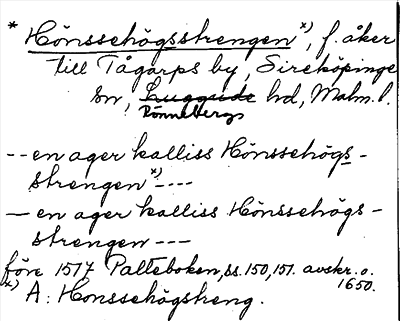 * Hönssehögsstrengen x), f. åker
till Tågarps by, Sireköpinge
sn, Luggude hd, Malm. l.
Rönnebergs
-- en ager kalliss Hönssehögs-
strengen x) ----
— en ager kalliss Hönssehögs-
strengen ---
före 1517 Palteboken, ss. 150, 151. avskr. o.
1650.
x) A: Honssehögstreng.